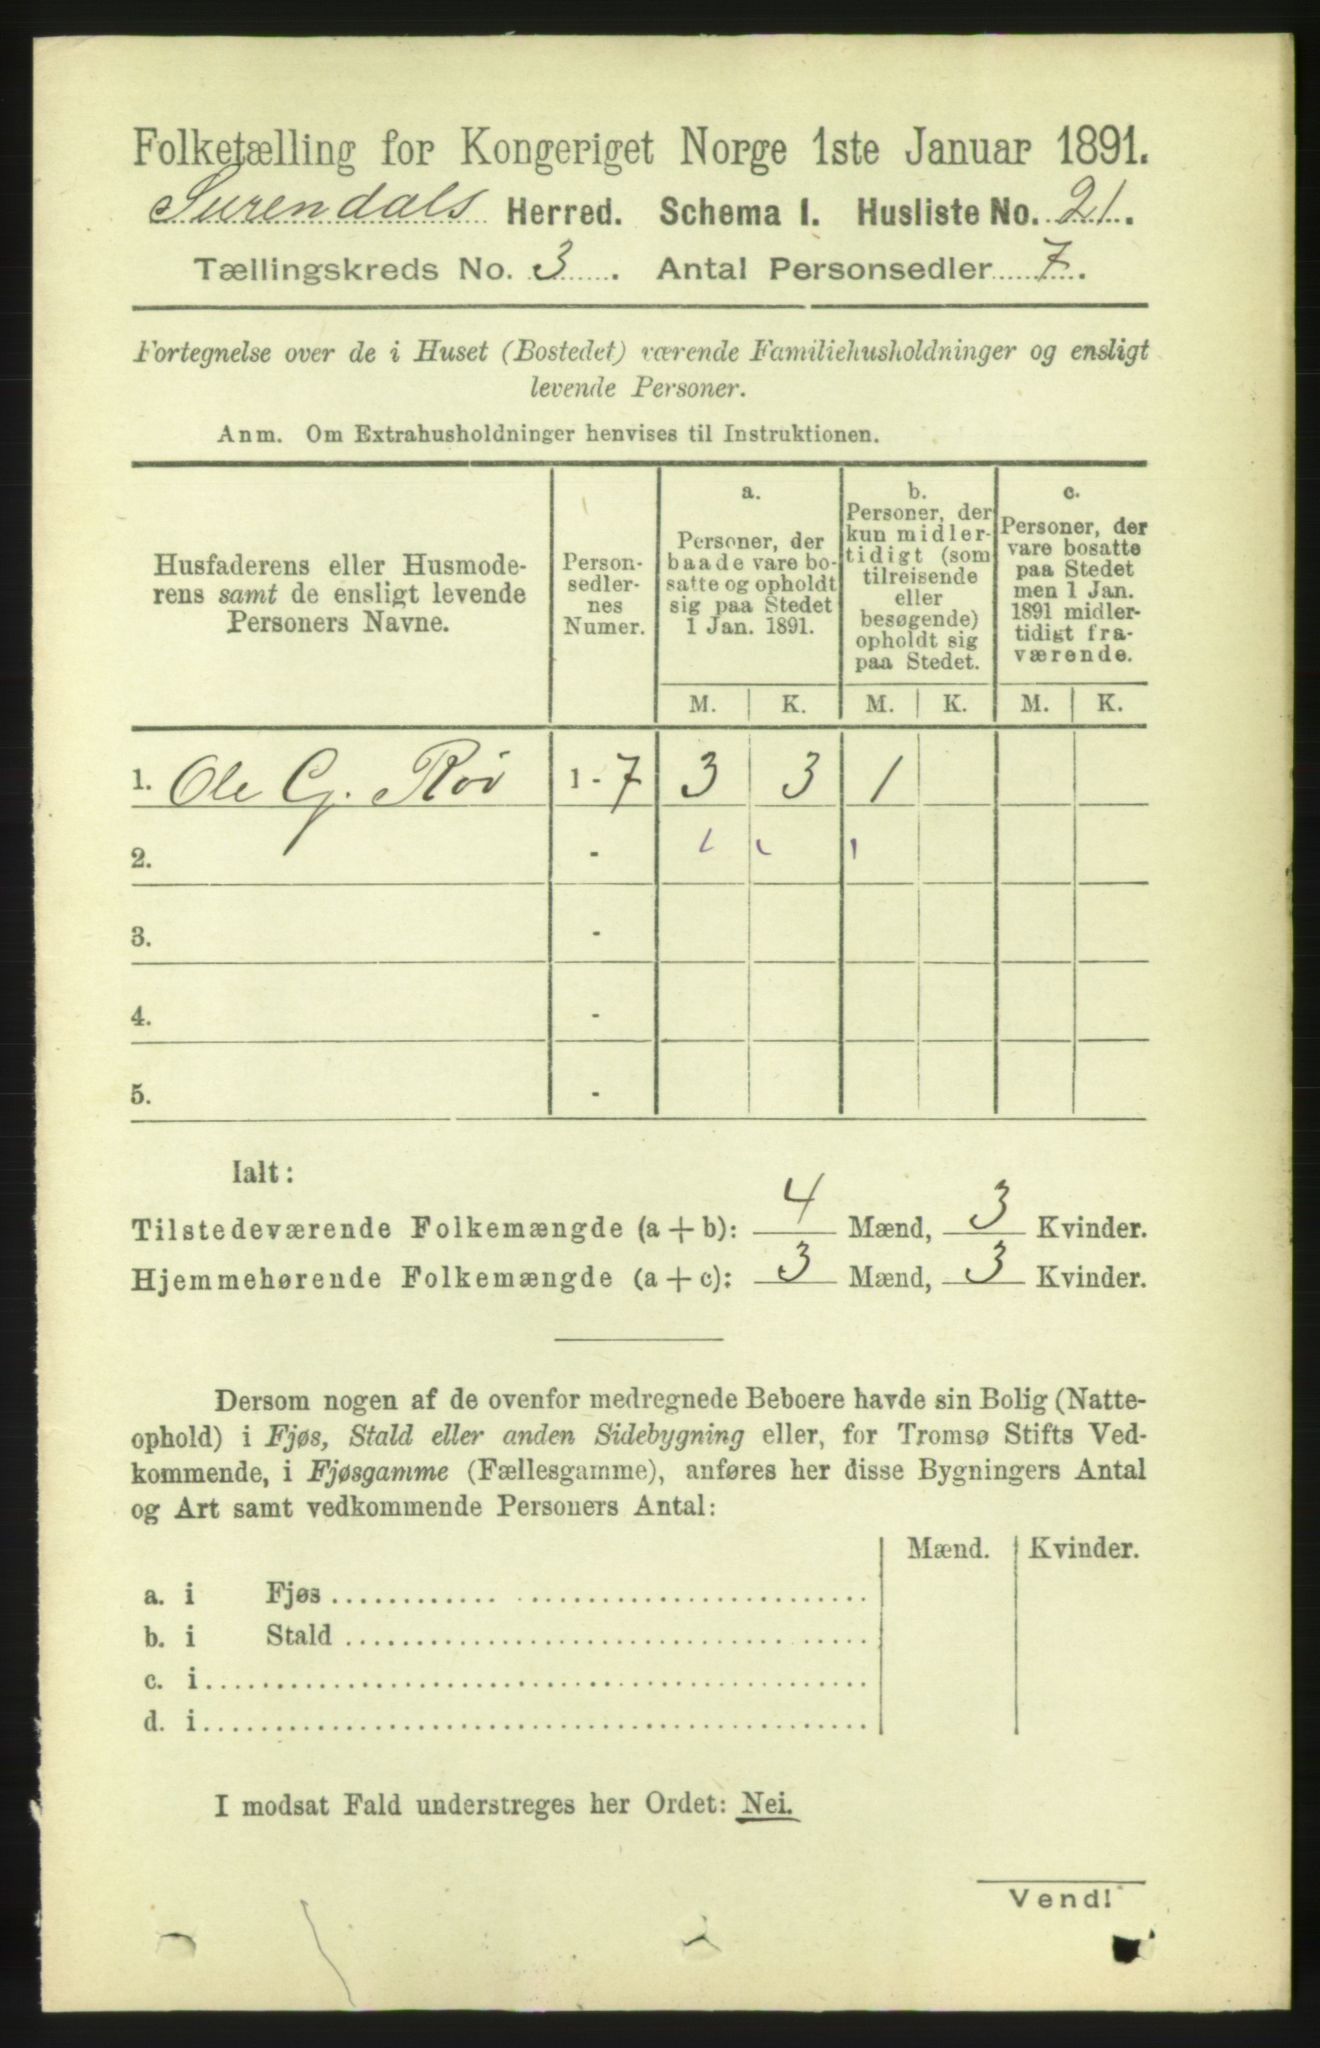 Folketælling for Kongeriget Norge 1ste Januar 1891.
Surendals Herred. Schema I. Husliste No. 21.
Tællingskreds No. 3. Antal Personsedler 7.
Fortegnelse over de i Huset (Bostedet) værende Familiehusholdninger og ensligt
levende Personer.
Anm. Om Extrahusholdninger henvises til Instruktionen.
Husfaderens eller Husmode-
rens samt de ensligt levende
Personers Navne.
Person-
sedler-
nes
Numer.
a.
Personer, der
baade vare bo-
satte og opholdt
sig paa Stedet
1 Jan. 1891.
b.
Personer, der
kun midler-
tidigt (som
tilreisende
eller
besøgende)
opholdt sig
paa Stedet.
c.
Personer, der
vare bosatte
paa Stedet
men 1 Jan.
1891 midler-
tidigt fra-
værende.
M. K. M. K. M. K.
1. Ole G. Röv 1 - 7 3 3 1
2. -
3. -
4. -
5. -
Ialt:
Tilstedeværende Folkemængde (a + b): 4 Mænd, 3 Kvinder.
Hjemmehørende Folkemængde (a + c): 3 Mænd, 3 Kvinder.
Dersom nogen af de ovenfor medregnede Beboere havde sin Bolig (Natte-
ophold) i Fjøs, Stald eller anden Sidebygning eller, for Tromsø Stifts Ved-
kommende, i Fjøsgamme (Fællesgamme), anføres her disse Bygningers Antal
og Art samt vedkommende Personers Antal:
Mænd. Kvinder.
a. i Fjøs
b. i Stald
c. i
d. i
I modsat Fald understreges her Ordet: Nei.
Vend!